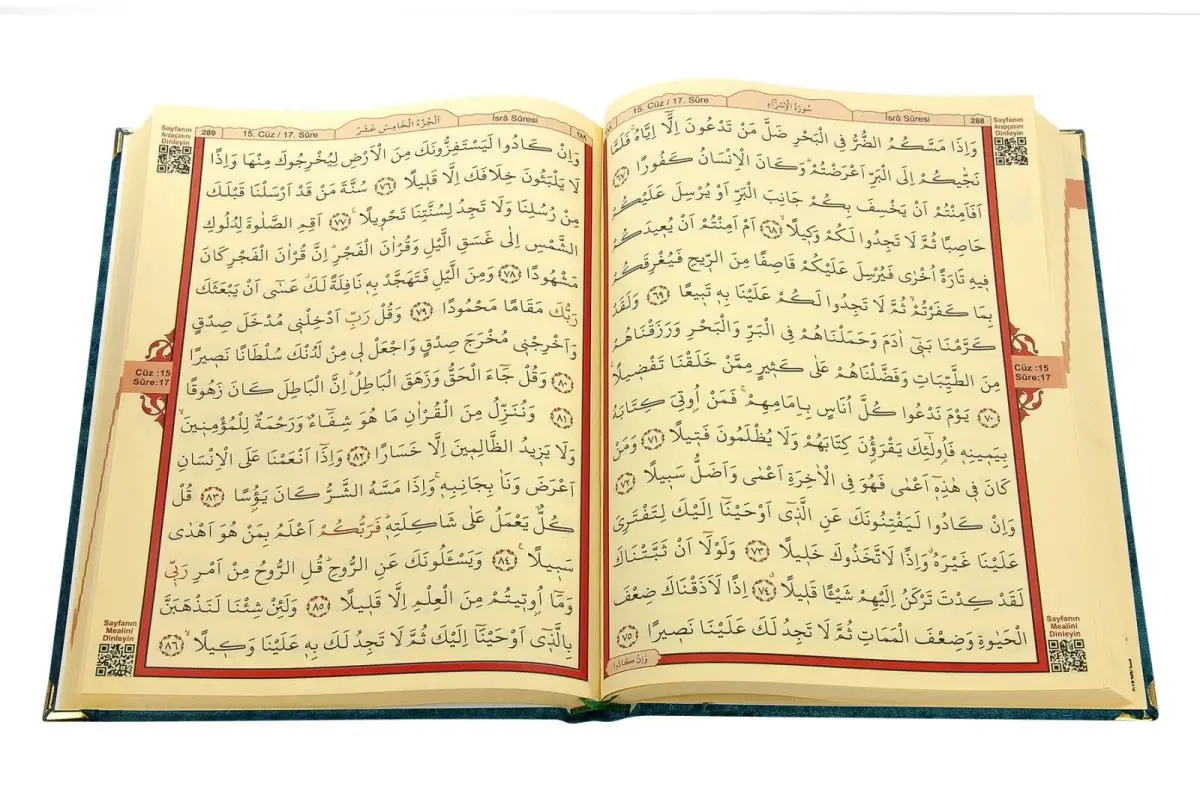 15. Cüz / 17. Sûre
سُورَةُ الْاِسْرَٓاءِ
İsrâ Sûresi
288
Sayfanın
Arapçasını
Dinleyin
وَاِذَا مَسَّكُمُ الضُّرُّ فِي الْبَحْرِ ضَلَّ مَنْ تَدْعُونَ اِلَّٓا اِيَّاهُۚ فَلَمَّا
نَجّٰيكُمْ اِلَى الْبَرِّ اَعْرَضْتُمْۜ وَكَانَ الْاِنْسَانُ كَفُورًا ﴿٦٧﴾
اَفَاَمِنْتُمْ اَنْ يَخْسِفَ بِكُمْ جَانِبَ الْبَرِّ اَوْ يُرْسِلَ عَلَيْكُمْ
حَاصِبًا ثُمَّ لَا تَجِدُوا لَكُمْ وَك۪يلًاۙ ﴿٦٨﴾ اَمْ اَمِنْتُمْ اَنْ يُع۪يدَكُمْ
ف۪يهِ تَارَةً اُخْرٰى فَيُرْسِلَ عَلَيْكُمْ قَاصِفًا مِنَ الرّ۪يحِ فَيُغْرِقَكُمْ
بِمَا كَفَرْتُمْۙ ثُمَّ لَا تَجِدُوا لَكُمْ عَلَيْنَا بِه۪ تَب۪يعًا ﴿٦٩﴾ وَلَقَدْ
كَرَّمْنَا بَن۪ٓي اٰدَمَ وَحَمَلْنَاهُمْ فِي الْبَرِّ وَالْبَحْرِ وَرَزَقْنَاهُمْ
مِنَ الطَّيِّبَاتِ وَفَضَّلْنَاهُمْ عَلٰى كَث۪يرٍ مِمَّنْ خَلَقْنَا تَفْض۪يلًا۟
﴿٧٠﴾ يَوْمَ نَدْعُوا كُلَّ اُنَاسٍ بِاِمَامِهِمْۚ فَمَنْ اُو۫تِيَ كِتَابَهُ
بِيَم۪ينِه۪ فَاُو۬لٰٓئِكَ يَقْرَؤُ۫نَ كِتَابَهُمْ وَلَا يُظْلَمُونَ فَت۪يلًا ﴿٧١﴾ وَمَنْ
كَانَ ف۪ي هٰذِه۪ٓ اَعْمٰى فَهُوَ فِي الْاٰخِرَةِ اَعْمٰى وَاَضَلُّ سَب۪يلًا ﴿٧٢﴾
وَاِنْ كَادُوا لَيَفْتِنُونَكَ عَنِ الَّذ۪ٓي اَوْحَيْنَٓا اِلَيْكَ لِتَفْتَرِيَ
عَلَيْنَا غَيْرَهُۗ وَاِذًا لَاتَّخَذُوكَ خَل۪يلًا ﴿٧٣﴾ وَلَوْلَٓا اَنْ ثَبَّتْنَاكَ
لَقَدْ كِدْتَ تَرْكَنُ اِلَيْهِمْ شَيْـًٔا قَل۪يلًاۗ ﴿٧٤﴾ اِذًا لَاَذَقْنَاكَ ضِعْفَ
الْحَيٰوةِ وَضِعْفَ الْمَمَاتِ ثُمَّ لَا تَجِدُ لَكَ عَلَيْنَا نَص۪يرًا ﴿٧٥﴾
وَاِنْ كَادُوا
Cüz :15
Sûre:17
Sayfanın
Mealini
Dinleyin
Sayfanın
Arapçasını
Dinleyin
289
15. Cüz / 17. Sûre
اَلْجُزْءُ الْخَامِسَ عَشَرَ
İsrâ Sûresi
وَاِنْ كَادُوا لَيَسْتَفِزُّونَكَ مِنَ الْاَرْضِ لِيُخْرِجُوكَ مِنْهَا وَاِذًا
لَا يَلْبَثُونَ خِلَافَكَ اِلَّا قَل۪يلًا ﴿٧٦﴾ سُنَّةَ مَنْ قَدْ اَرْسَلْنَا قَبْلَكَ
مِنْ رُسُلِنَا وَلَا تَجِدُ لِسُنَّتِنَا تَحْو۪يلًا۟ ﴿٧٧﴾ اَقِمِ الصَّلٰوةَ لِدُلُوكِ
الشَّمْسِ اِلٰى غَسَقِ الَّيْلِ وَقُرْاٰنَ الْفَجْرِۜ اِنَّ قُرْاٰنَ الْفَجْرِ كَانَ
مَشْهُودًا ﴿٧٨﴾ وَمِنَ الَّيْلِ فَتَهَجَّدْ بِه۪ نَافِلَةً لَكَۗ عَسٰٓى اَنْ يَبْعَثَكَ
رَبُّكَ مَقَامًا مَحْمُودًا ﴿٧٩﴾ وَقُلْ رَبِّ اَدْخِلْن۪ي مُدْخَلَ صِدْقٍ
وَاَخْرِجْن۪ي مُخْرَجَ صِدْقٍ وَاجْعَلْ ل۪ي مِنْ لَدُنْكَ سُلْطَانًا نَص۪يرًا
﴿٨٠﴾ وَقُلْ جَٓاءَ الْحَقُّ وَزَهَقَ الْبَاطِلُۜ اِنَّ الْبَاطِلَ كَانَ زَهُوقًا
﴿٨١﴾ وَنُنَزِّلُ مِنَ الْقُرْاٰنِ مَا هُوَ شِفَٓاءٌ وَرَحْمَةٌ لِلْمُؤْمِن۪ينَۙ
وَلَا يَز۪يدُ الظَّالِم۪ينَ اِلَّا خَسَارًا ﴿٨٢﴾ وَاِذَٓا اَنْعَمْنَا عَلَى الْاِنْسَانِ
اَعْرَضَ وَنَاٰ بِجَانِبِه۪ۚ وَاِذَا مَسَّهُ الشَّرُّ كَانَ يَؤُ۫سًا ﴿٨٣﴾ قُلْ
كُلٌّ يَعْمَلُ عَلٰى شَاكِلَتِه۪ۜ فَرَبُّكُمْ اَعْلَمُ بِمَنْ هُوَ اَهْدٰى
سَب۪يلًا۟ ﴿٨٤﴾ وَيَسْـَٔلُونَكَ عَنِ الرُّوحِۜ قُلِ الرُّوحُ مِنْ اَمْرِ رَبّ۪ي
وَمَٓا اُو۫ت۪يتُمْ مِنَ الْعِلْمِ اِلَّا قَل۪يلًا ﴿٨٥﴾ وَلَئِنْ شِئْنَا لَنَذْهَبَنَّ
بِالَّذ۪ٓي اَوْحَيْنَٓا اِلَيْكَ ثُمَّ لَا تَجِدُ لَكَ بِه۪ عَلَيْنَا وَك۪يلًاۙ ﴿٨٦﴾
Cüz :15
Sûre:17
Sayfanın
Mealini
Dinleyin